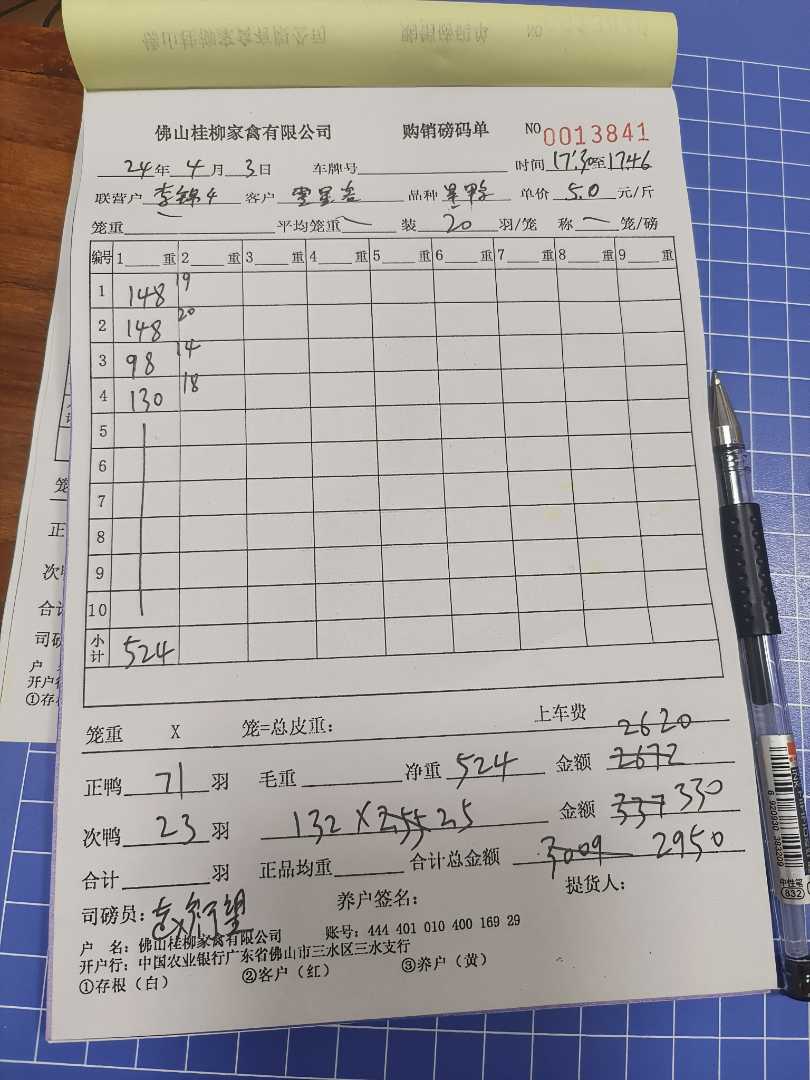 佛山桂柳家禽有限公司 购销磅码单 NO 0013841
24年4月3日 车牌号 时间17:30至17:46
联营户 李锦4 客户 品种 单价 5.0 元/斤
笼重 平均笼重 装 20 羽/笼 称 一 笼/磅
编号 1 重 2 重 3 重 4 重 5 重 6 重 7 重 8 重 9 重
1 148 19
2 148 20
3 98 14
4 130 18
5
6
7
8
9
10
小计 524
笼重 X 笼=总皮重: 上车费
2620
正鸭 71 羽 毛重 净重 524 金额 2672
次鸭 23 羽 132 X 2.55 2.5 金额 337 330
合计 羽 正品均重 合计总金额 3009 2950
司磅员: 养户签名: 提货人:
户 名: 佛山桂柳家禽有限公司 账号: 444 401 010 400 169 29
开户行: 中国农业银行广东省佛山市三水区三水支行
①存根（白） ②客户（红） ③养户（黄）
正
次鸭
合计
司磅
户
开户行
①存
中性笔
(832)
6 920930 393209